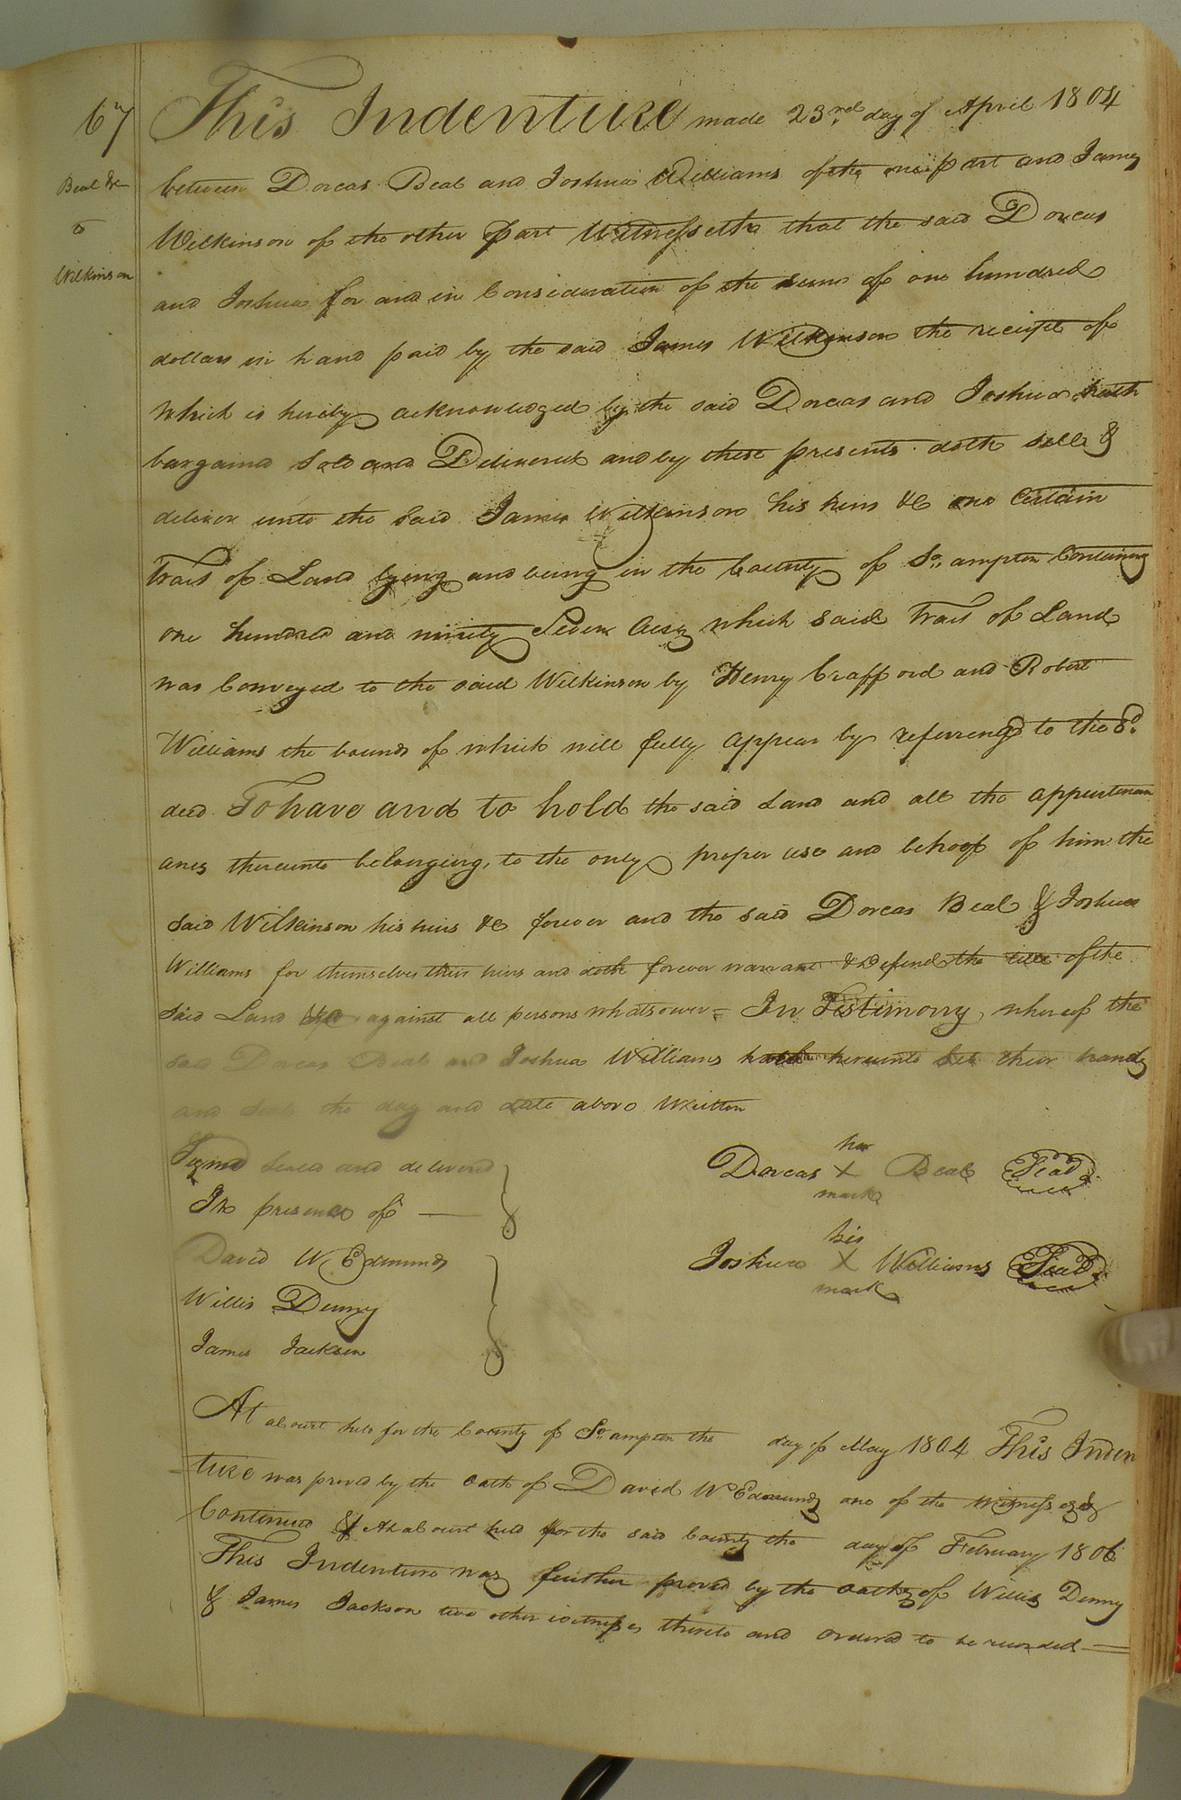 67
Beal &c
to
Wilkinson
This Indenture made 23rd day of April 1804
between Dorcas Beal and Joshua Williams of the one part and James
Wilkinson of the other part Witnesseth that the said Dorcas
and Joshua for and in Consideration of the sum of one hundred
dollars in hand paid by the said James Wilkinson the receipt of
which is hereby acknowledged by the said Dorcas and Joshua hath
bargaind Sold and Delivered and by these presents doth sell &
deliver unto the said James Wilkinson his heirs &c one Certain
Tract of Land lying and being in the County of So.ampton Containing
one hundred and ninety Seven Acres which said Tract of Land
was Conveyed to the said Wilkinson by Henry Crafford and Robert
Williams the bounds of which will fully appear by referring to the sd.
deed To have and to hold the said Land and all the appurtenan
ances thereunto belonging, to the only proper use and behoof of him the
said Wilkinson his heirs &c forever and the said Dorcas Beal & Joshua
Williams for themselves their heirs and doth forever warrant & Defend the title of the
said Land &c against all persons whatsoever = In Testimony whereof the
said Dorcas Beal and Joshua Williams hath hereunto Set their hands
and Seals the day and date above Written
Signd Seald and deliverd
In presence of
David W Edmunds
Willis Denny
James Jackson
her
Dorcas X Beal Seal
mark
his
Joshua X Williams Seal
mark
At a Court held for the County of So.ampton the day of May 1804 This Inden
ture was proved by the oath of David W Edmunds one of the witnesses &
Continued & At a Court held for the said County the day of February 1806
This Indenture was further proved by the oaths of Willis Denny
& James Jackson two other witnesses thereto and ordered to be recorded